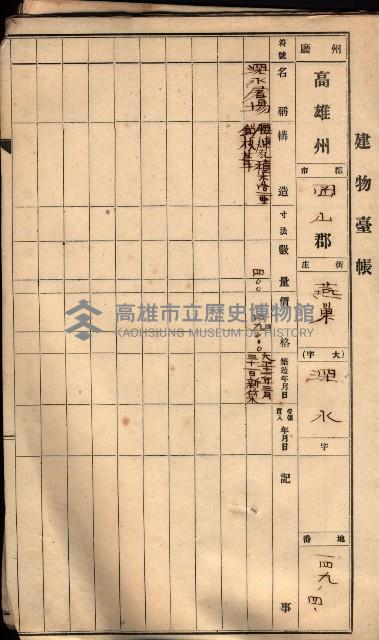 建物臺帳
州廳 高雄州
郡市 岡山郡
街庄 燕巢
(大字) 深水
字
地番 一四九ノ四、
符號
名稱
構造
寸法
數量
價格
築造年月日
受領買入年月日
記事
深水屠場
四〇〇
大正十二年三月
三十一日新築
高雄市立歷史博物館
KAOHSIUNG MUSEUM OF HISTORY